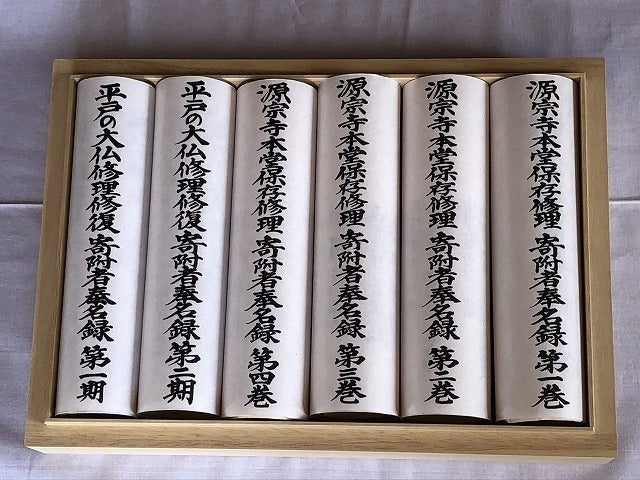 源宗寺本堂保存修理 寄附者奉名録 第一巻
源宗寺本堂保存修理 寄附者奉名録 第二巻
源宗寺本堂保存修理 寄附者奉名録 第三巻
源宗寺本堂保存修理 寄附者奉名録 第四巻
平戸の大仏修理修復 寄附者奉名録 第二期
平戸の大仏修理修復 寄附者奉名録 第一期